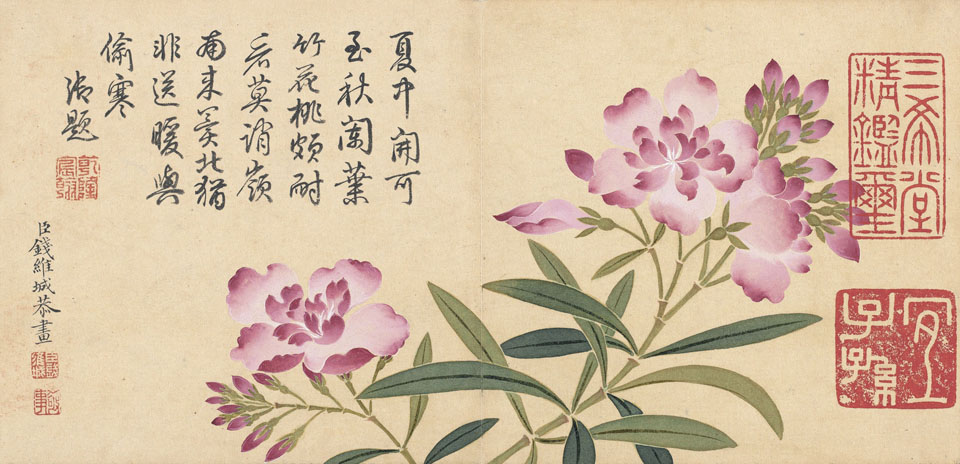 三希堂
精鑑璽
宜
子孫
夏中開可
至秋闌葉
竹花桃頗耐
看莫誚嶺
南来冀北猶
非送暖與
偷寒
御題
乾隆
宸翰
臣錢維城恭畫